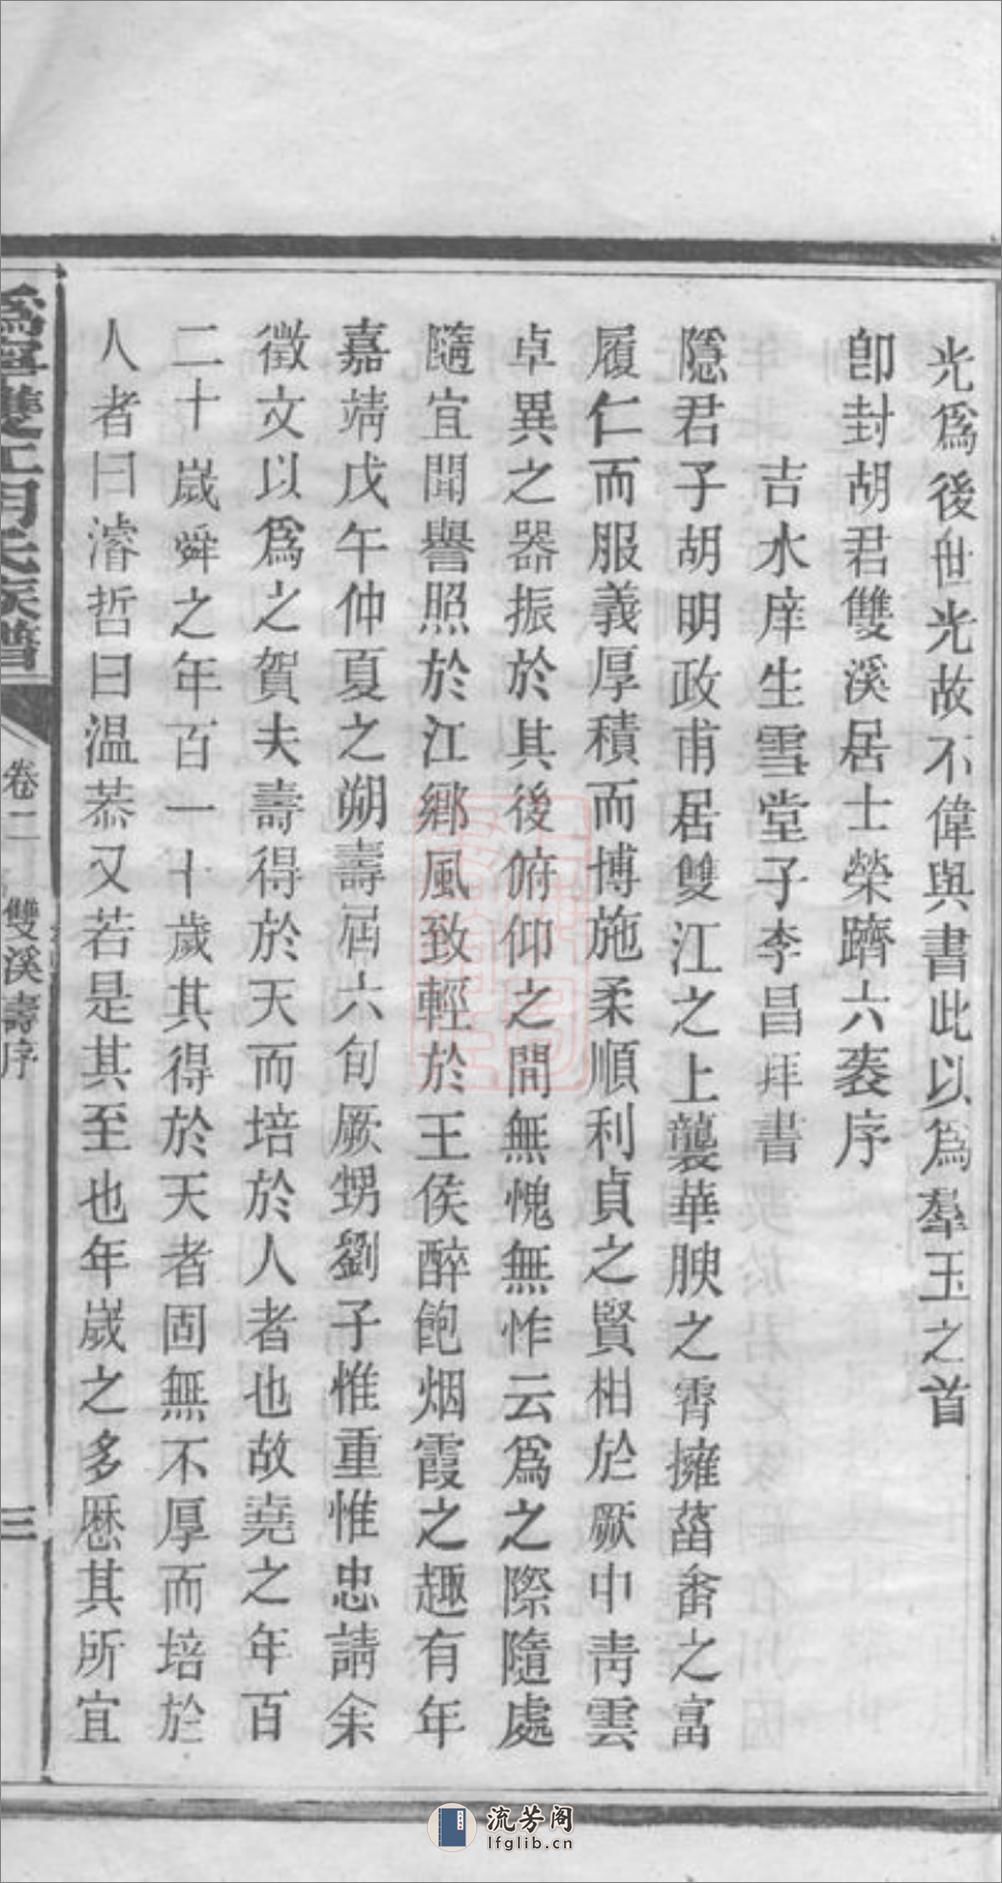 光爲後世光故不偉與書此以爲羣玉之首
卽封胡君雙溪居士榮躋六袠序
吉水庠生雪堂子李昌拜書
隱君子胡明政甫居雙江之上襲華腴之霄擁菑畬之富
履仁而服義厚積而博施柔順利貞之賢相於厥中靑雲
卓異之器振於其後俯仰之間無愧無怍云爲之際隨處
隨宜聞譽照於江鄉風致輕於王侯醉飽烟霞之趣有年
嘉靖戊午仲夏之朔壽屆六旬厥甥劉子惟重惟忠請余
徵文以爲之賀夫壽得於天而培於人者也故堯之年百
二十嵗舜之年百一十歲其得於天者固無不厚而培於
人者曰濬哲曰温恭又若是其至也年嵗之多厯其所宜
爲寧雙江胡氏族譜
卷二
雙溪壽序
三
流芳阁
lfglib.cn